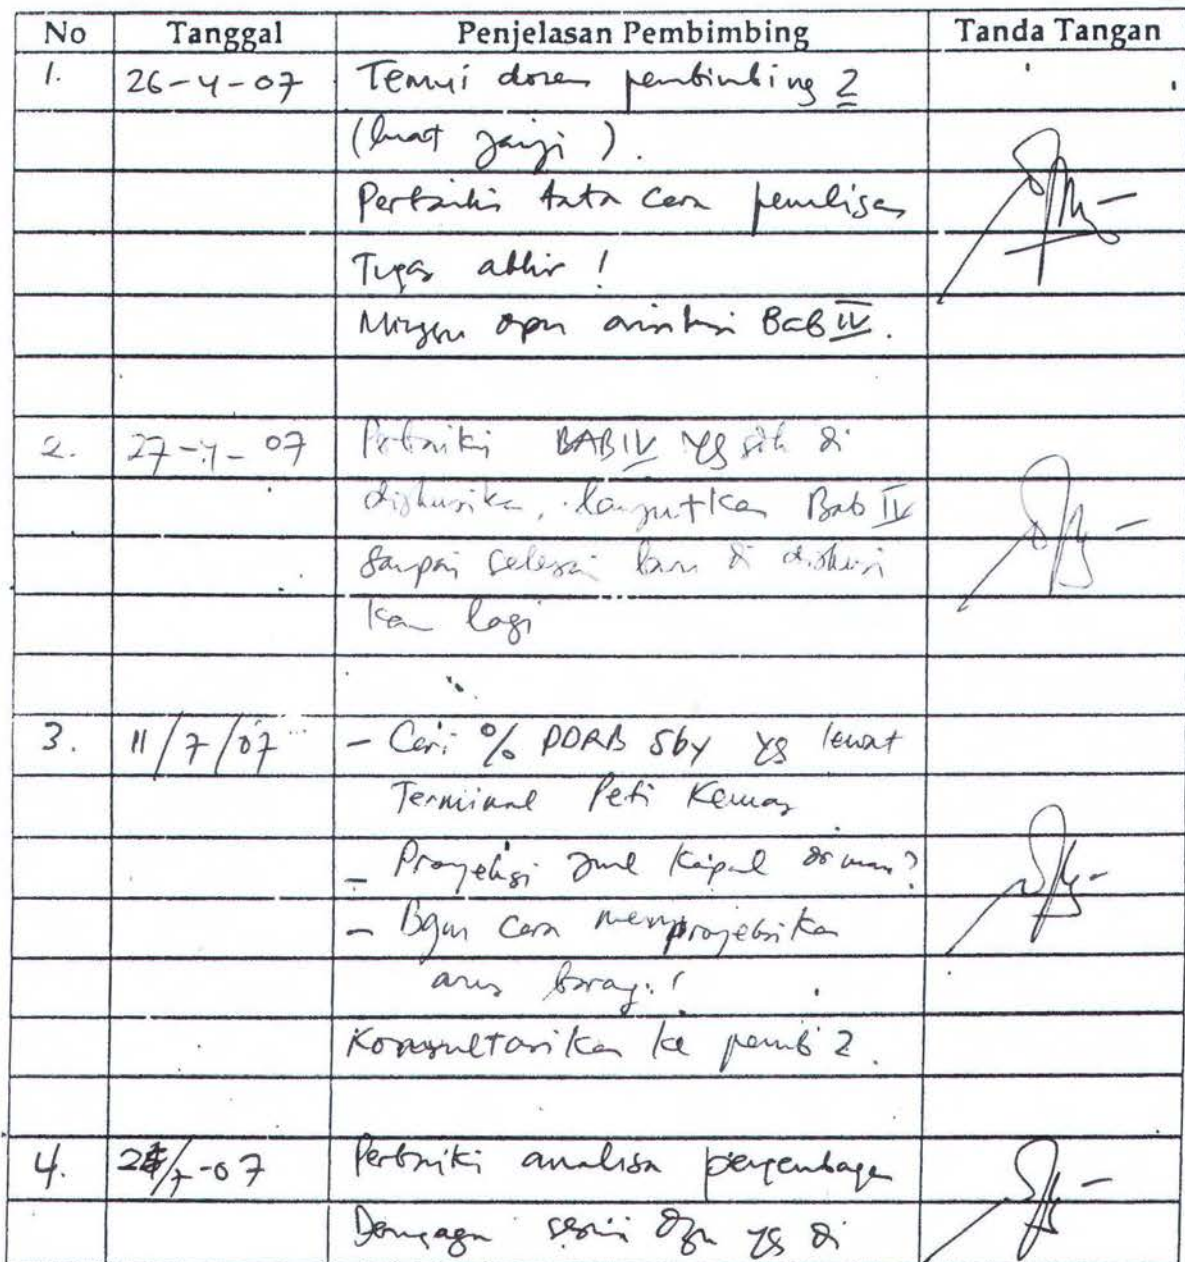 No Tanggal Penjelasan Pembimbing Tanda Tangan
1. 26-4-07 Temui dosen pembimbing 2
(buat janji).
Perbaiki tata cara penulisan
Tugas akhir!
Minggu dpn asistensi Bab IV.
2. 27-4-07 Perbaiki BAB IV yg sdh di
diskusikan, lanjutkan Bab IV
sampai selesai baru di diskusi
kan lagi
3. 11/7/07 - Cari % PDRB Sby yg lewat
Terminal Peti Kemas
- Proyeksi Jml Kapal
- Bgm cara memproyeksikan
arus barang!
Konsultasikan ke pemb 2.
4. 7-07 Perbaiki analisa pengembangan
Dermaga sesuai dgn yg di